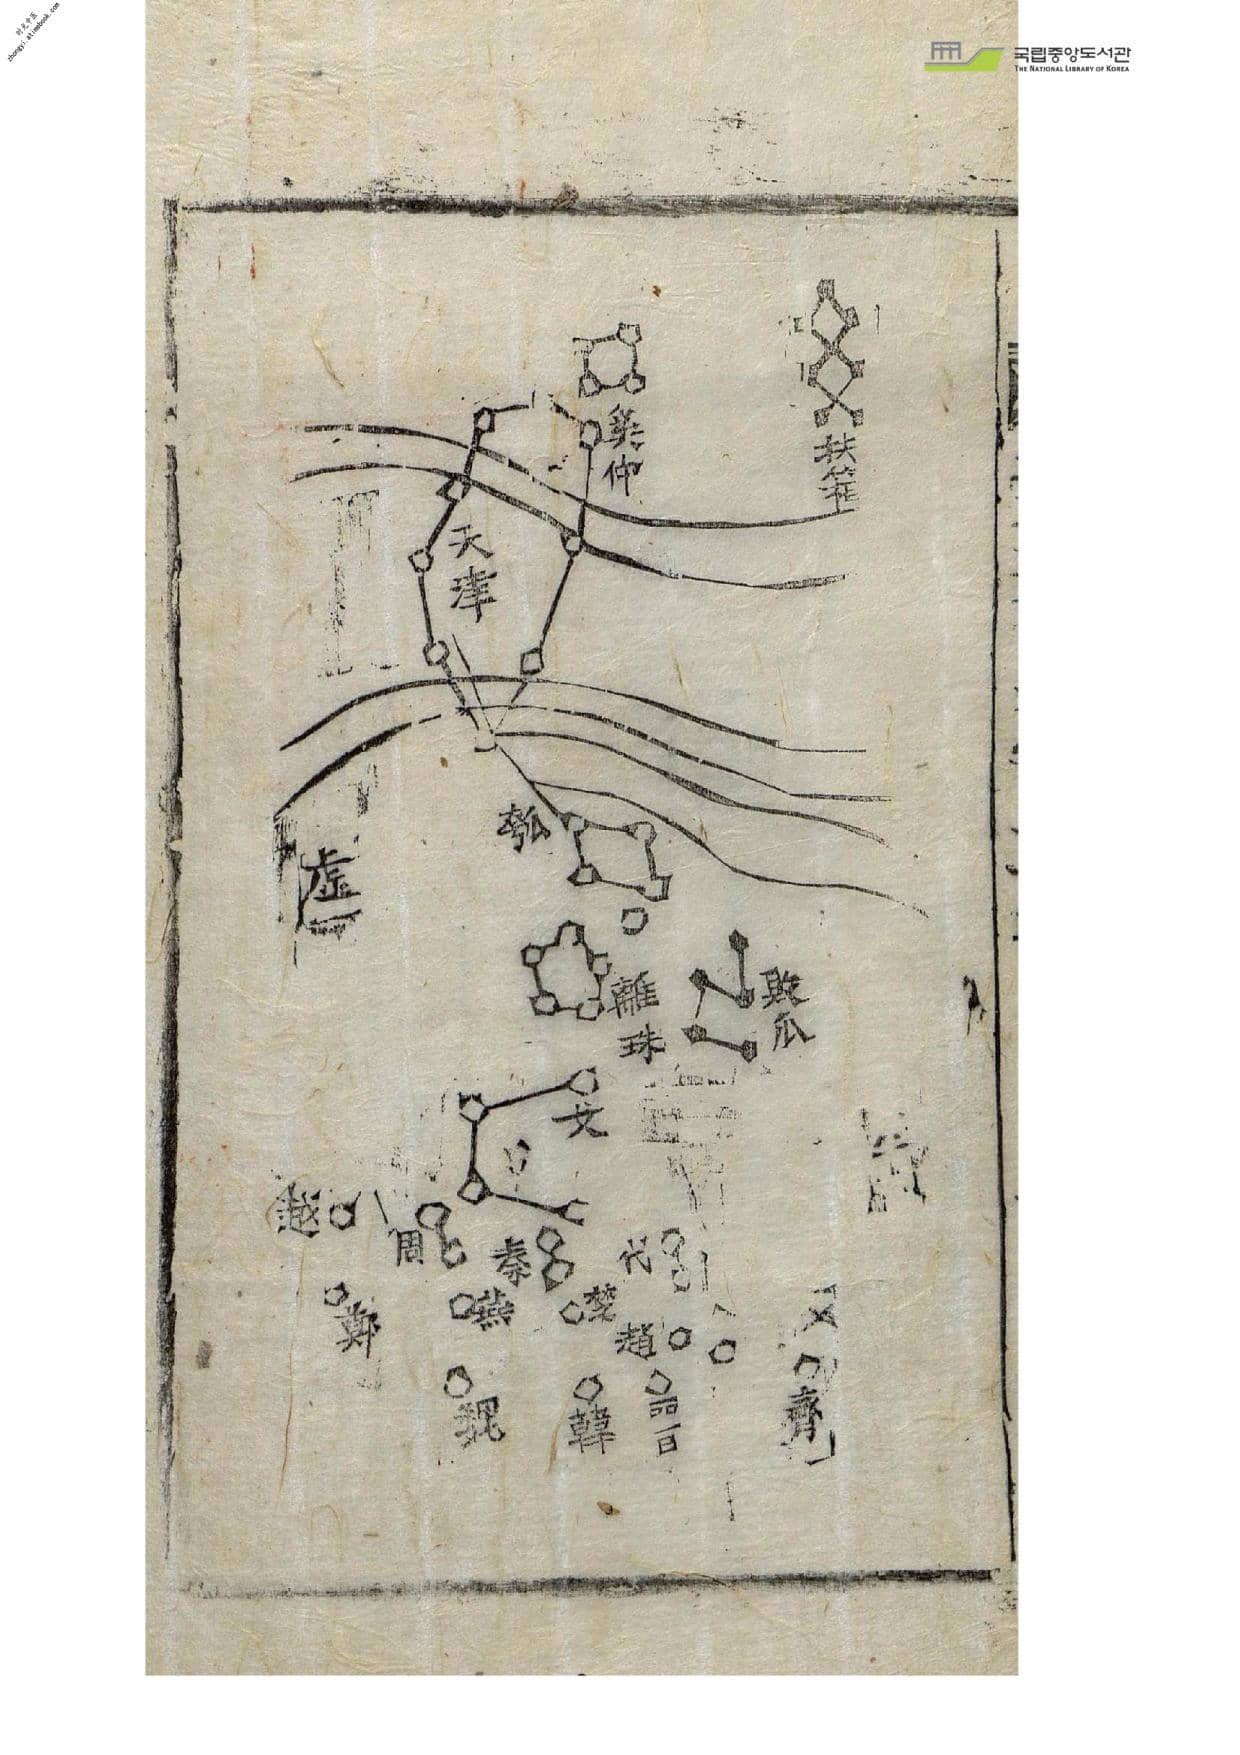 时光中医
zhongyi.atimebook.com
국립중앙도서관
THE NATIONAL LIBRARY OF KOREA
扶筐
奚仲
天津
瓠
虛
離珠
敗瓜
女
越
周
秦
代
鄭
燕
楚
趙
魏
韓
晋
齊